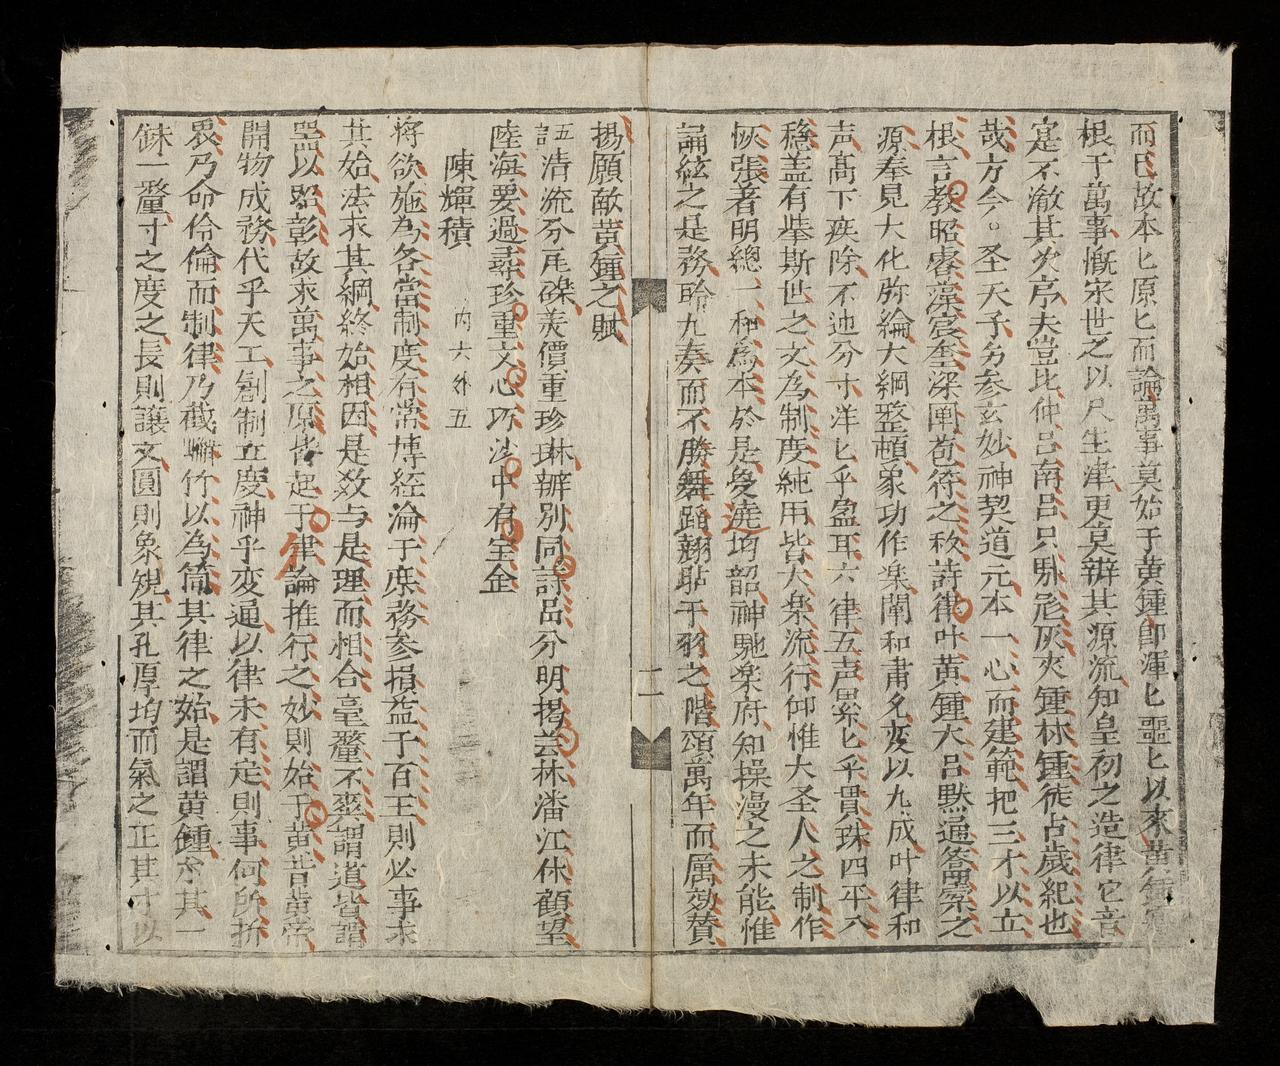 而已故本匕原匕而論萬事莫始于黄鍾即渾匕噩匕以來黄鍾
根于萬事慨宋世之以尺生津更莫辨其源流知皇初之造律它音
寔不澈其次序夫豈比仲吕南吕只馳灰夾鍾林鍾徒占歲紀也
哉方今。圣天子另参玄妙神契道元本一心而建範把三才以立
根言教昭睿藻宸奎深闡苞符之秘詩律叶黄鍾大吕黙通籥之
源奉見大化弥綸大綱整頓象功作楽闡和肅九変以九成叶律和
声髙下疾除不迆分寸洋匕乎盈耳六律五声累匕乎貫珠四平八
穏盖有挙斯世之文為制度純用皆大楽流行仰惟大圣人之制作
恢張著明總一和為本於是旻遶均韶神馳楽府知操漫之未能惟
誦絃之是務聆九奏而不勝舞蹈翹貼干羽之階頌萬年而厲効賛
揚願敵黄鍾之賦
五言浩流分玉磔羡價重珍琳辨别同詩品分明掲芸林潘江休顧望
陸海要過尋珍重文心巧沙中有宝金
陳輝積
内六外五
将欲施為各當制度有常博経淪于庶務参損益于百王則必事求
其始法求其綱終始相因是敎与是理而相合毫釐不爽謂道皆謂
噐以昭彰故求萬事之原皆起于律論推行之妙則始于黄昔黄帝
開物成務代乎天工創制立慶神乎変通以律未有定則事何所折
衷乃命伶倫而制律乃截嶰竹以為筒其律之始是謂黄鍾令其一
銖一釐寸之度之長則譲文圓則象規其孔厚均而氣之正其寸以
二